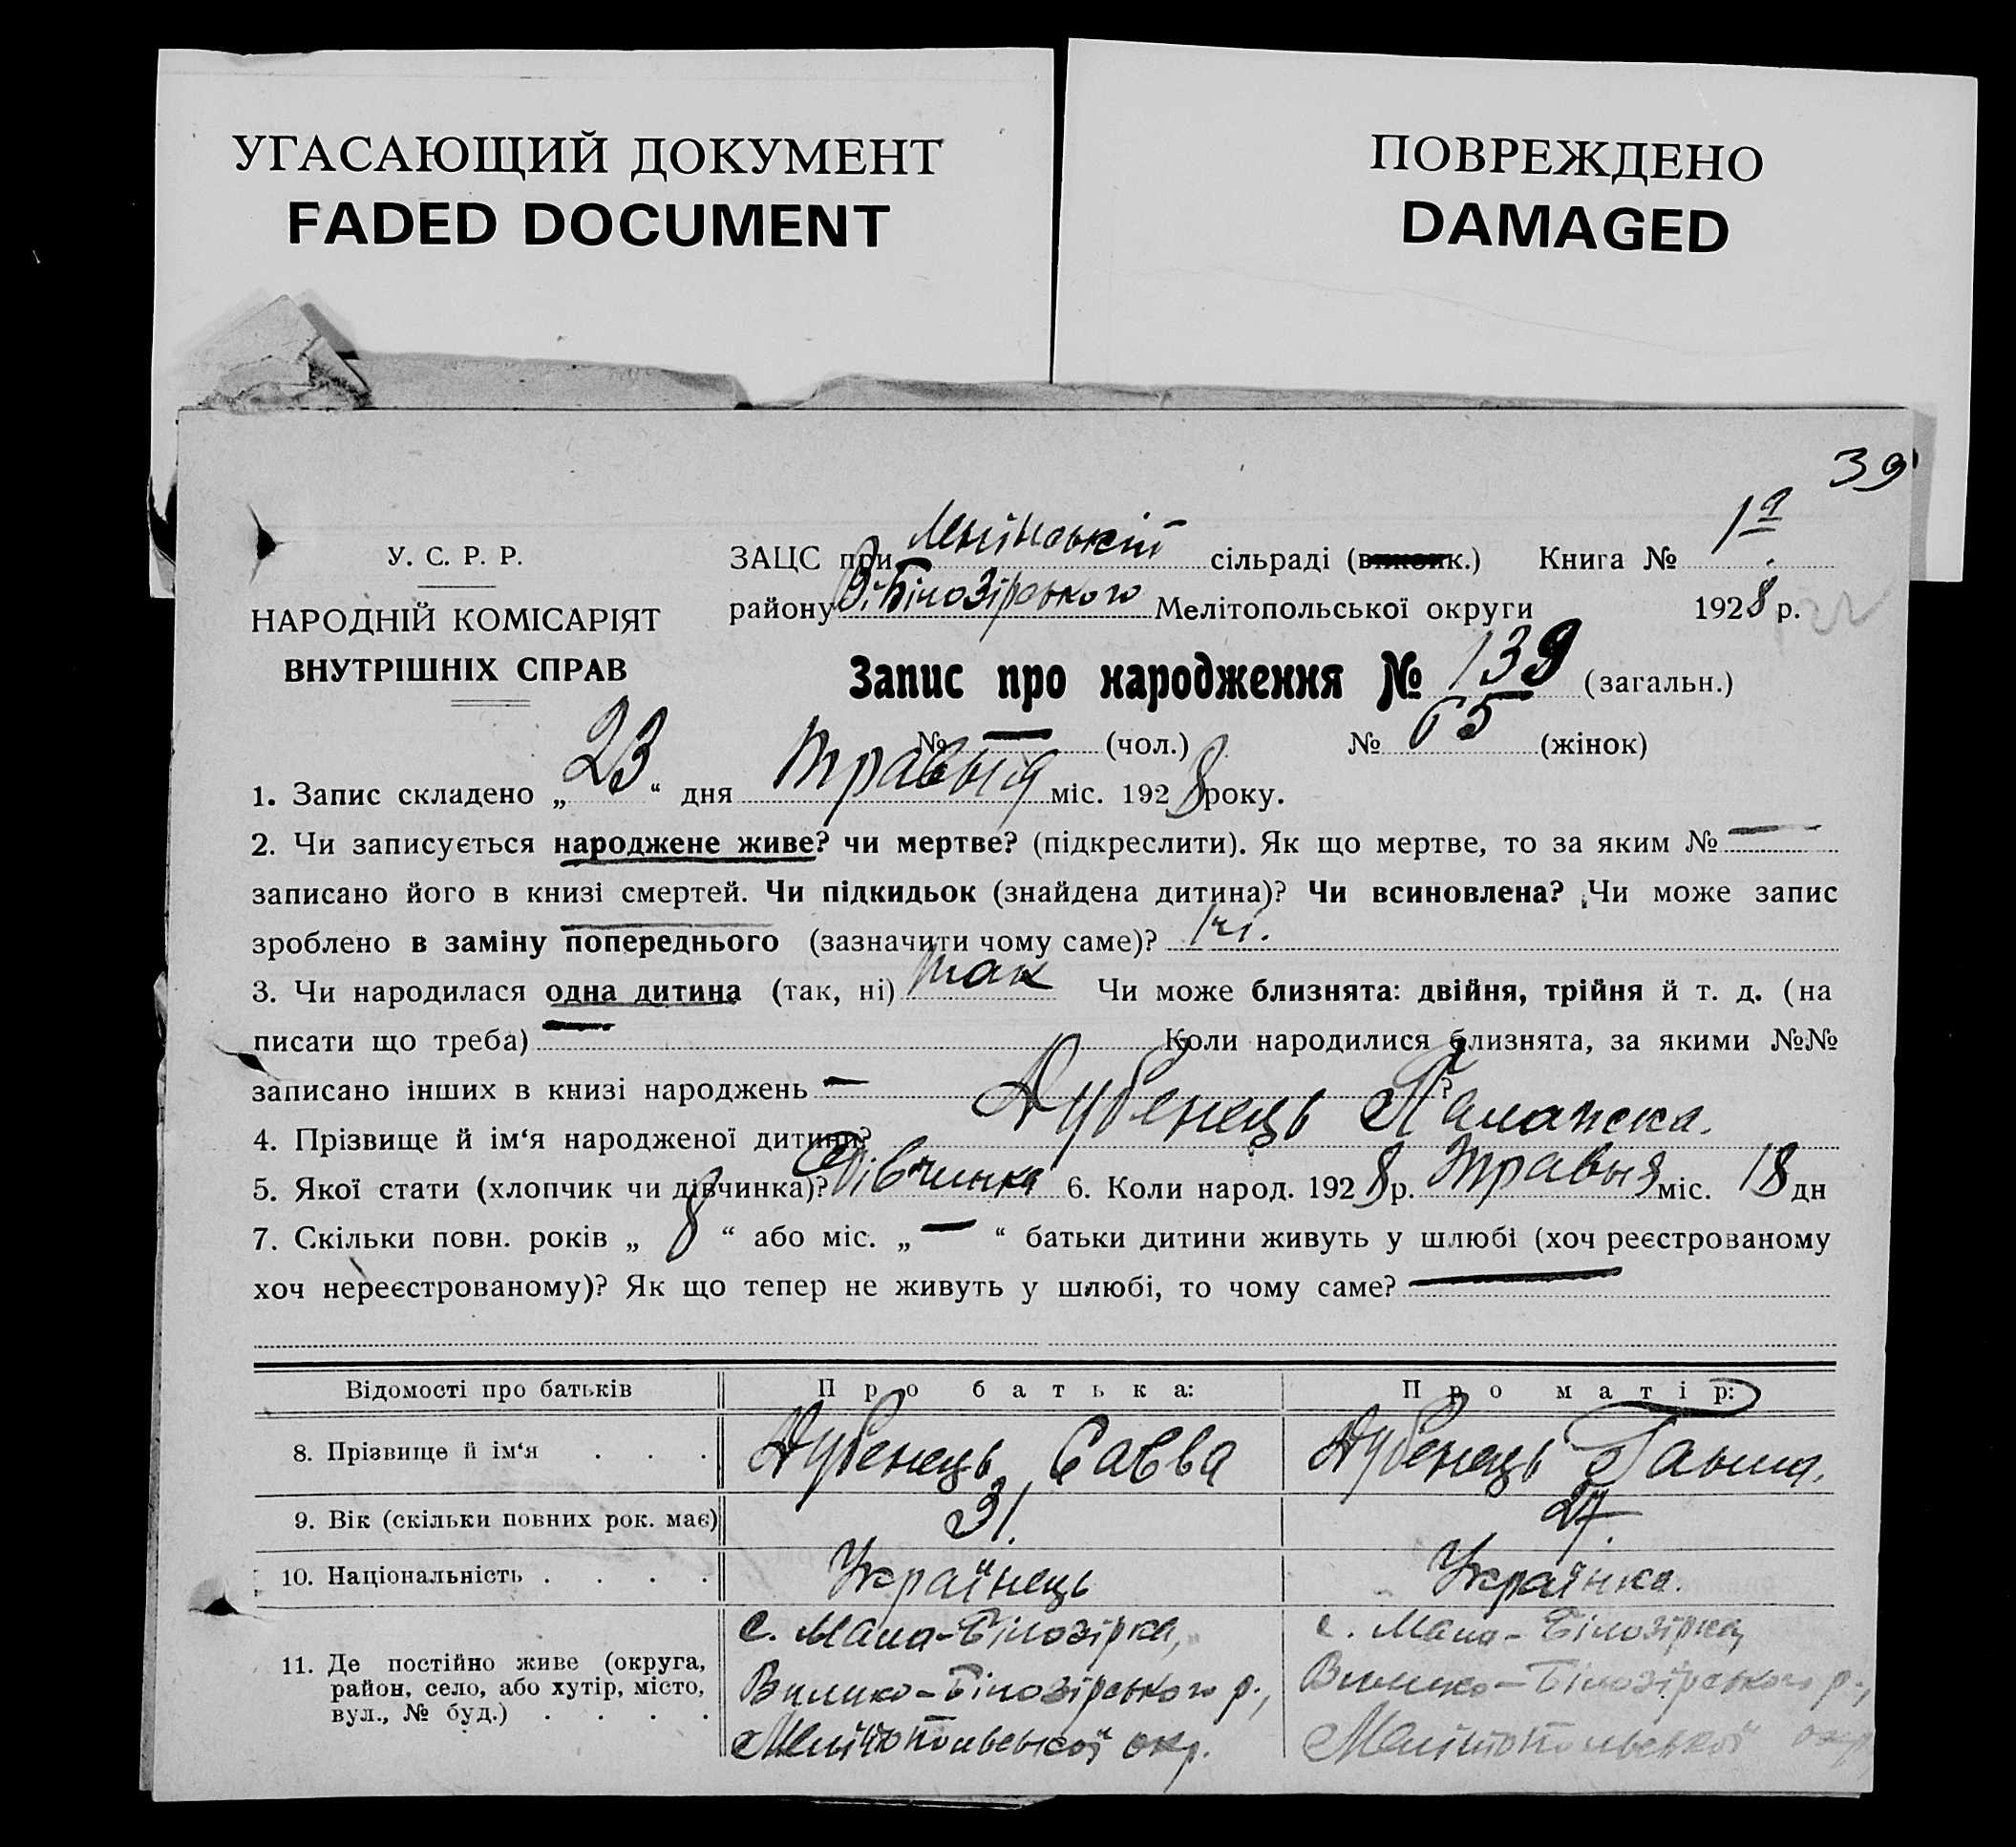 УГАСАЮЩИЙ ДОКУМЕНТ
FADED DOCUMENT
ПОВРЕЖДЕНО
DAMAGED
39
У. С. Р. Р.
НАРОДНІЙ КОМІСАРІЯТ
ВНУТРІШНІХ СПРАВ
ЗАЦС при Ленінській сільраді (виконк.) Книга № 1а
району В. Білозірського Мелітопольської округи 1928 р.
Запис про народження № 139 (загальн.)
№ — (чол.) № 65 (жінок)
1. Запис складено „ 23 “ дня травня міс. 1928 року.
2. Чи записується народжене живе? чи мертве? (підкреслити). Як що мертве, то за яким № —
записано його в книзі смертей. Чи підкидьок (знайдена дитина)? Чи всиновлена? Чи може запис
зроблено в заміну попереднього (зазначити чому саме)? Ні.
3. Чи народилася одна дитина (так, ні) так Чи може близнята: двійня, трійня й т. д. (на
писати що треба) — Коли народилися близнята, за якими №№
записано інших в книзі народжень — ?
4. Прізвище й ім‘я народженої дитини? Дубенець Палапска.
5. Якої стати (хлопчик чи дівчинка)? Дівчинка 6. Коли народ. 1928 р. Травня міс. 18 дн
7. Скільки повн. років „ 8 “ або міс. „ — “ батьки дитини живуть у шлюбі (хоч реєстрованому
хоч нереєстрованому)? Як що тепер не живуть у шлюбі, то чому саме? —
Відомості про батьків Про батька: Про матір:
8. Прізвище й ім‘я . . . Дубенець Савва Дубенець Ганна.
9. Вік (скільки повних рок. має) 31. 27.
10. Національність . . . . Українець Українка.
11. Де постійно живе (округа,
район, село, або хутір, місто,
вул., № буд.) . . . .
с. Мала-Білозірка,
Велико-Білозірського р.,
Мелітопольської окр.
с. Мала-Білозірка,
Велико-Білозірського р.,
Мелітопольської окр